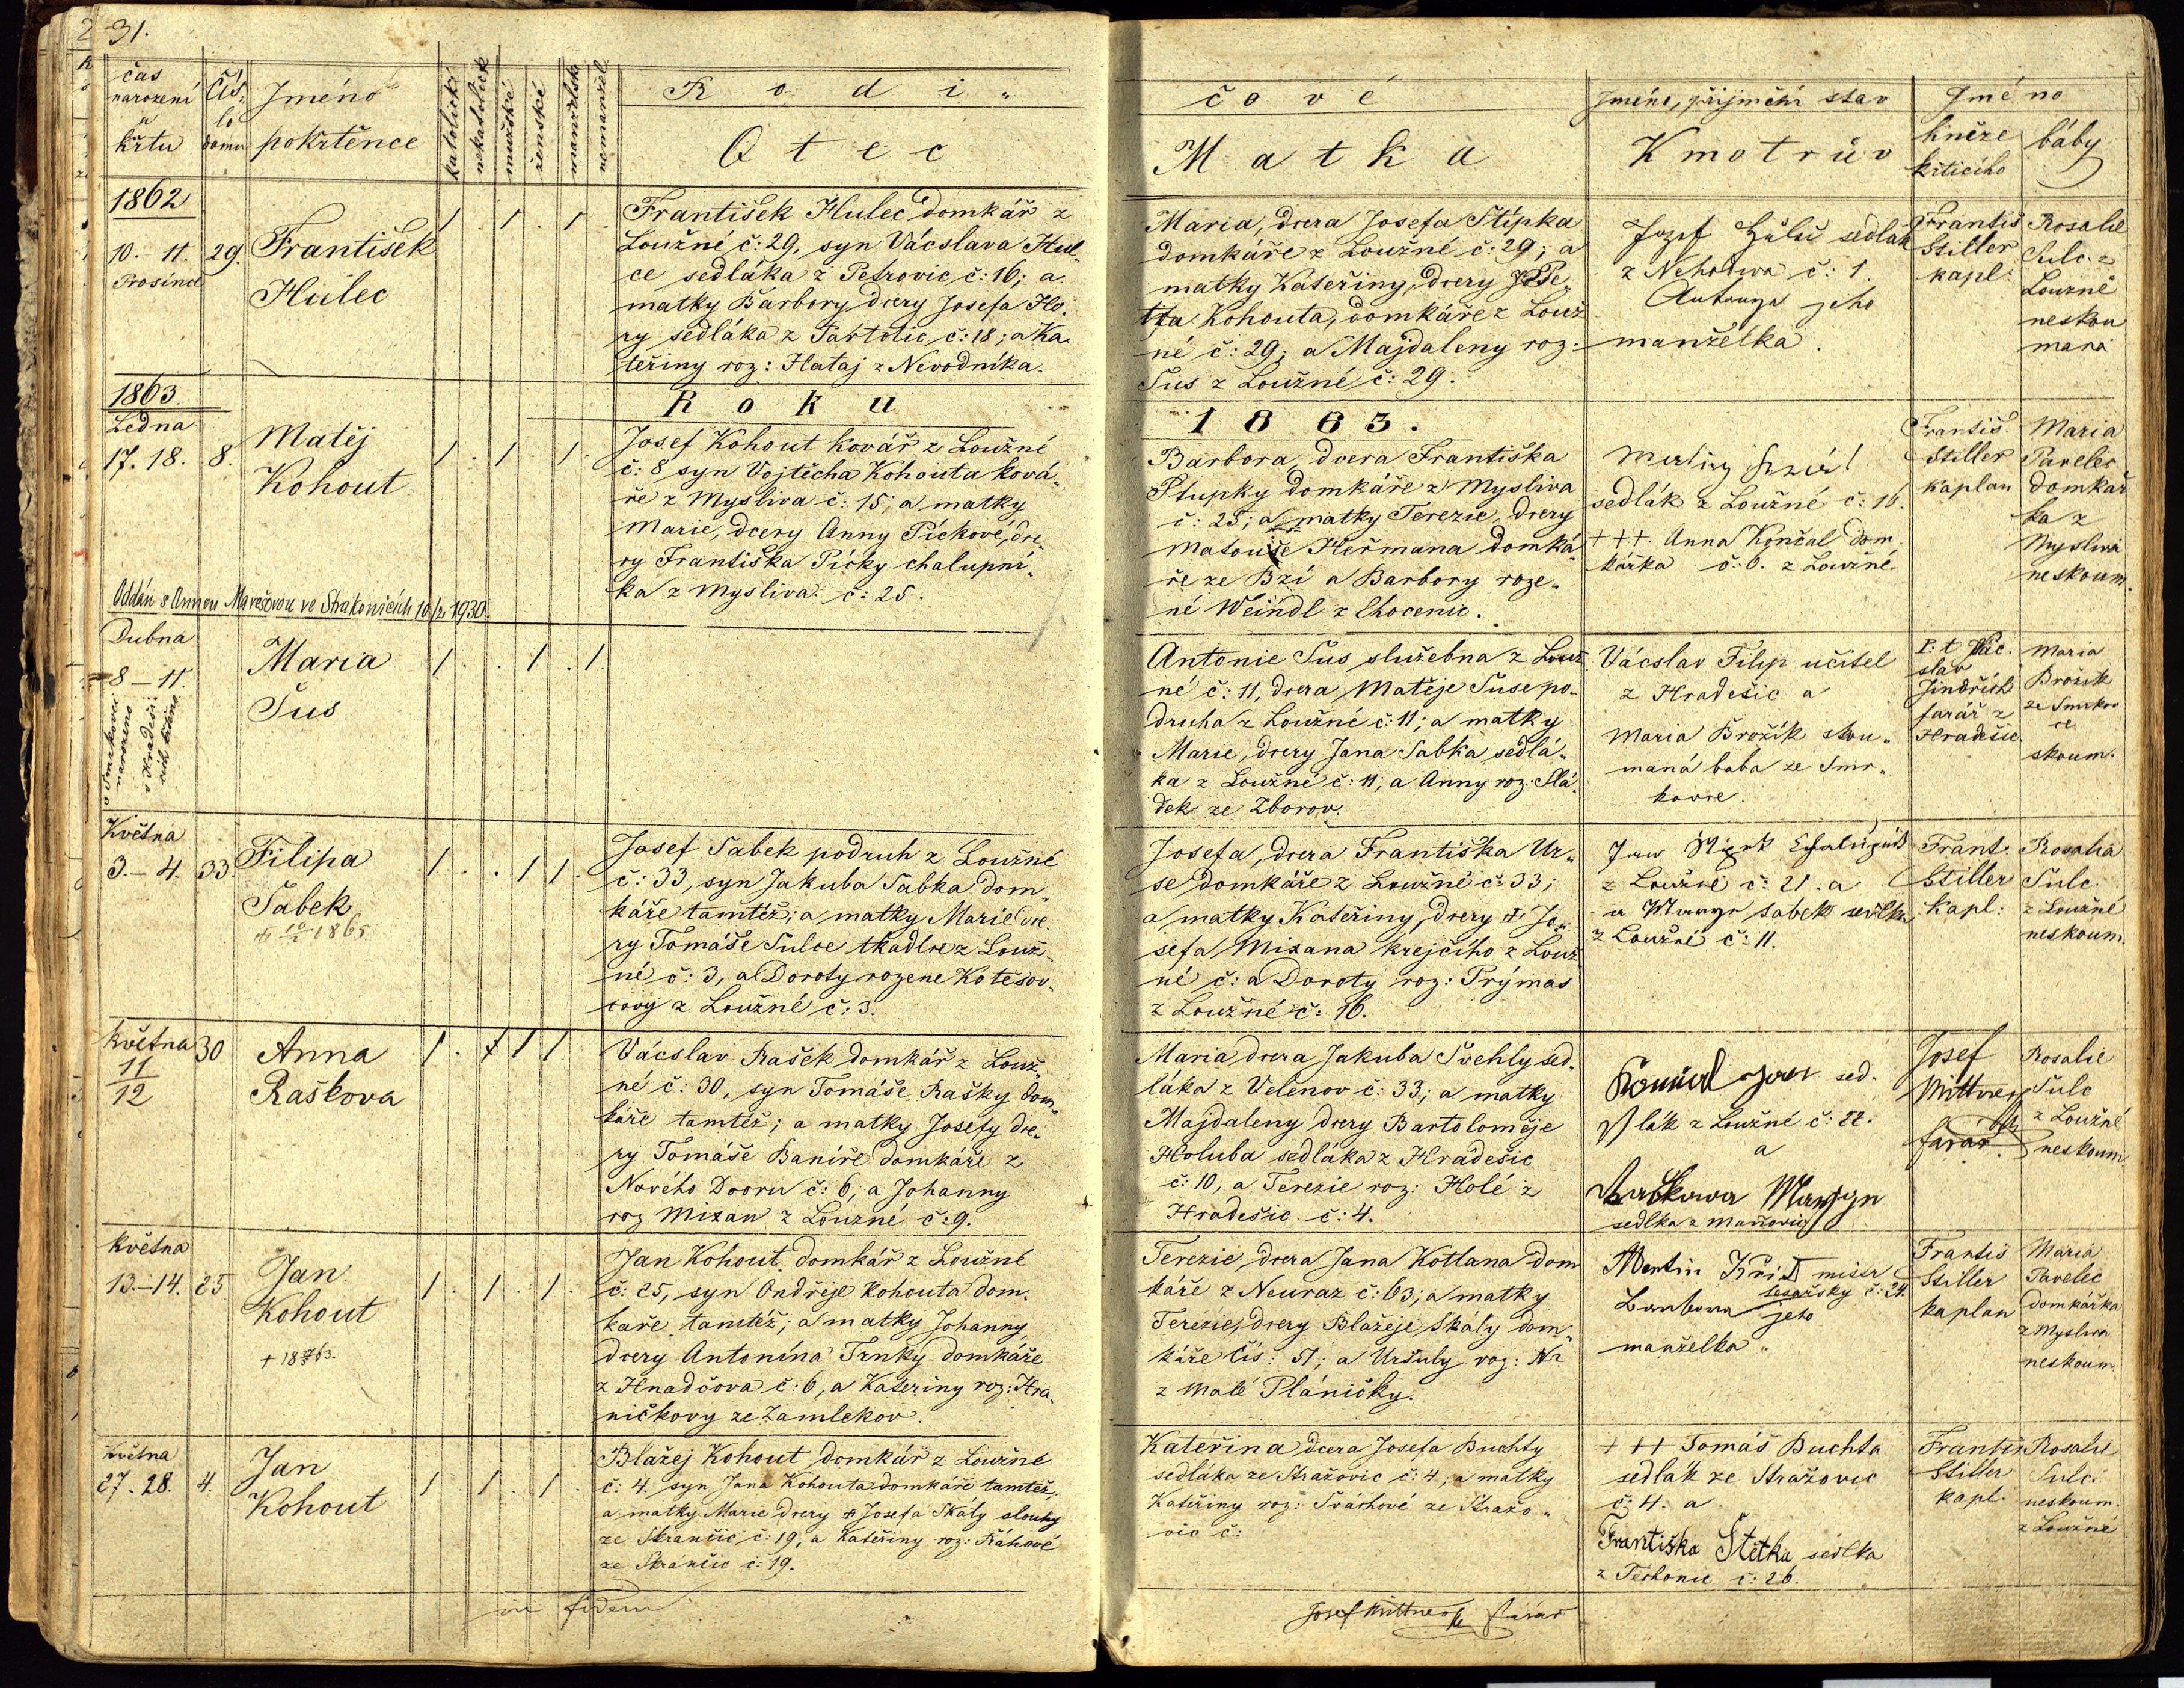 31.
čas
narození
a
křtu
Čís-
lo
domu
Jméno
pokřtěnce
katolické
nekatolick
mužské
ženské
manželsk
nemanžel
Rodi-
Otec
čové
Matka
Jméno, přijmění stav
Kmotrův
Jméno
kněze
křtícího
báby
1862
10.-11.
Prosince
29.
František
Hulec
1. 1. 1.
František Hulec domkář z
Loužné č: 29, syn Václava Hul-
ce sedláka z Petrovic č: 16; a
matky Barbory dcery Josefa Ho-
ry sedláka z Tartolic č: 18; a Ka-
teřiny roz: Hataj z Nevodníka.
Maria, dcera Josefa Štípka
domkáře z Loužné č: 29; a
matky Kateřiny, dcery Pe-
tra Kohouta, domkáře z Louž
né č: 29; a Majdaleny roz:
Šus z Loužné č: 29.
Jozef sedlák
z Nehodiva č: 1.
jeho
manželka.
Františ
Stiller
kapl:
Rosalie
Šulc z
Loužné
neskou
maná
1863.
Roku
1863.
Ledna
17. 18.
8.
Matěj
Kohout
1. 1. 1.
Josef Kohout kovář z Loužné
č: 8 syn Vojtěcha Kohouta ková-
ře z Mysliva č: 15; a matky
Marie, dcery Anny Píckové, dce-
ry Františka Pícky chalupní-
ka z Mysliva č: 25.
Oddán s Annou Marešovou ve Strakonicích 1930.
Barbora dcera Františka
Stupky domkáře z Mysliva
č: 25; a matky Terezie, dcery
Matouše Heřmana domká
ře ze Bzí a Barbory roze-
né Weindl z Chocenic.
sedlák z Loužné č: 16.
+++ Anna Končal dom
kářka č: 6. z Loužné
Františ.
Stiller
kaplan
Maria
Pavelec
domkář
ka z
Mysliva
neskoum.
Dubna
8-11.
Maria
Šus
1. . 1. 1
Antonie Šus služebna z Louž
né č: 11, dcera Matěje Šuse po-
druha z Loužné č: 11; a matky
Marie, dcery Jana Sabka sedlá-
ka z Loužné č: 11; a Anny roz: Slá-
dek ze Zborov.
Václav Filip učitel
z Hradešic a
Maria Brožík skou-
maná baba ze Smr-
kovce
P: t Vác.
slav
Jindřich
farář z
Hradešic
Maria
Brožík
ze Smrkov
ce
skoum.
Května
3.-4.
33.
Filipa
Sabek
1865
1. . 1 1.
Josef Sabek podruh z Loužné
č: 33, syn Jakuba Sabka dom-
káře tamtéž; a matky Marie dce
ry Tomáše Šulce tkadlce z Louž-
né č: 3, a Doroty rozene Kotěšov-
covy z Loužné č: 3.
Josefa, dcera Františka Ur-
se domkáře z Loužné č: 33;
a matky Kateřiny, dcery + Jo-
sefa Mixana krejčího z Louž
né č: a Doroty roz: Prýmas
z Loužné č: 16.
Jan
z Loužné č: 21. a
Sabek sedlka
z Loužné č: 11.
Frant.
Stiller
kapl:
Rosalia
Šulc
z Loužné
neskoum.
Května
11
12
30
Anna
Raškova
1. 1 1
Václav Rašek domkář z Louž-
né č: 30, syn Tomáše Rašky dom-
káře tamtéž; a matky Josefy dce-
ry Tomáše Baníře domkáře z
Nového Dvoru č: 6; a Johanny
roz Mixan z Loužné č: 9.
Maria dcera Jakuba Švehly sed-
láka z Velenov č: 33; a matky
Majdaleny dcery Bartoloměje
Holuba sedláka z Hradešic
č: 10, a Terezie roz: Holé z
Hradešic č: 4.
Jan sed.
lák z Loužné č: 22.
a
sedlka z Maňovic
Josef
Mittner
farář
Rosalie
Šulc
z Loužné
neskoum
Května
13.-14.
25.
Jan
Kohout
1. 1. 1.
Jan Kohout domkář z Loužné
č: 25, syn Ondřeje Kohouta dom-
káře tamtéž; a matky Johanny
dcery Antonína Trnky domkáře
z Hnadčova č: 6, a Kateřiny roz: Hra-
ničkovy ze Zamlekov.
Terezie, dcera Jana Kotlana dom
káře z Neuraz č: 63; a matky
Terezie, dcery Blažeje Skály dom-
káře čís: 51; a Uršuly roz:
z Malé Pláničky.
Martin mistr
tesařský č: 24.
Barbora jeho
manželka
Františ
Stiller
kaplan
Maria
Pavelec
domkářka
z Mysliva
neskoum.
Května
27. 28.
4.
Jan
Kohout
1. 1. 1.
Blažej Kohout domkář z Loužné
č: 4. syn Jana Kohouta domkáře tamtéž,
a matky Marie dcery + Josefa Skály slouhy
ze Strančic č: 19, a Kateřiny roz: Ráhové
ze Strančic č: 19.
Kateřina dcera Josefa Buchty
sedláka ze Stražovic č: 4; a matky
Kateřiny roz: Šváchové ze Stražo-
vic č:
+++ Tomáš Buchta
sedlák ze Stražovic
č: 4. a
Františka Štětka sedlka
z Těchonic č: 26.
Františ
Stiller
kapl.
Rosalie
Šulc
neskoum.
z Loužné
in fidem
Josef Mittner farář